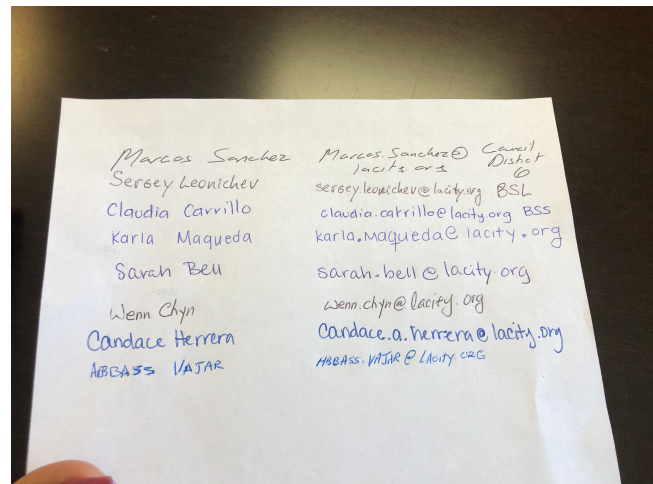 Marcos Sanchez Marcos.Sanchez@ Council
lacity.org District
6
Sergey Leonichev sergey.leonichev@lacity.org BSL
Claudia Carrillo claudia.carrillo@lacity.org BSS
Karla Maqueda karla.maqueda@lacity.org
Sarah Bell sarah.bell@lacity.org
Wenn Chyn wenn.chyn@lacity.org
Candace Herrera Candace.a.herrera@lacity.org
ABBASS VAJAR ABBASS.VAJAR@LACITY.ORG